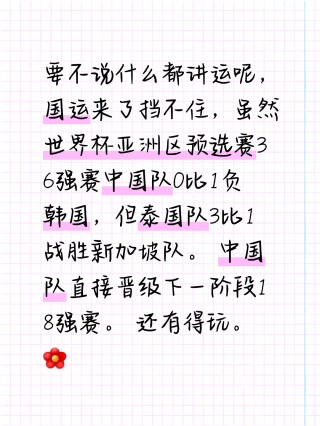 要不说什么都讲运呢，
国运来了挡不住，虽然
世界杯亚洲区预选赛3
6强赛中国队0比1负
韩国，但泰国队3比1
战胜新加坡队。 中国
队直接晋级下一阶段1
8强赛。 还有得玩。